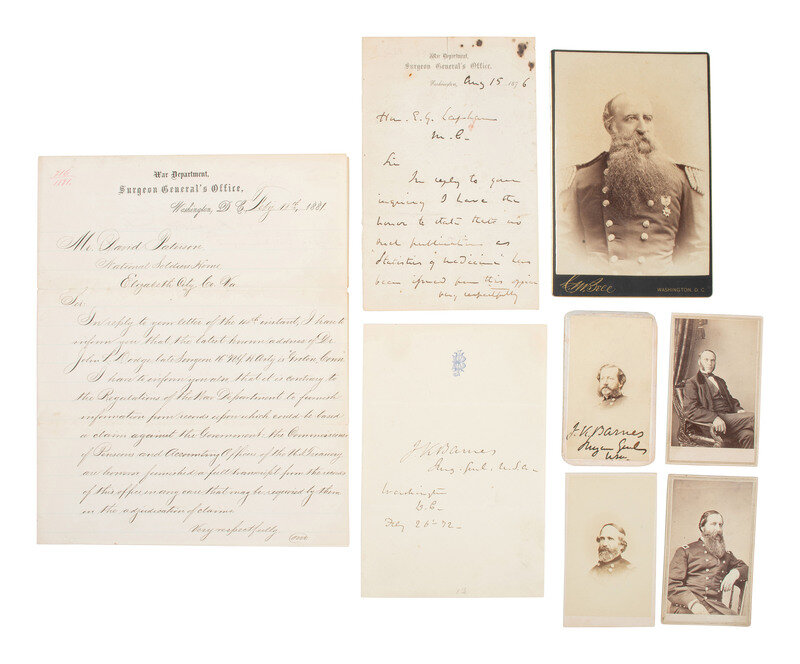 War Department,
Surgeon General's Office,
Washington, D C, Feby 1881
Mr. David Paterson
National Soldiers Home
Elizabeth City Co Va
Sir:
In reply to your letter of the inst, I have to
inform you that the latest known address of Dr.
John L. Dodge late Surgeon Arty is Conn
I have to inform you also that it is contrary to
the Regulations of the War Department to furnish
information from records upon which could be based
a claim against the Government: the Commissioner
of Pensions and Accounting Officers of the U.S. Treasury
are however furnished a full transcript from the records
of this office in any case that may be required by them
in the adjudication of claims.
Very respectfully
War Department,
Surgeon General's Office,
Washington, Aug 15 1876
Hon. E. G. Lapham
M. C.
Sir
In reply to your
inquiry I have the
honor to state that no
such publication as
Statistics of Medicine has
been issued from this office
Very respectfully
J K Barnes
Surg. Genl. U.S.A.
Washington
D.C.
Feby 26th 72
C.M. Bell
WASHINGTON, D. C.
J. K Barnes
Surgeon Genl
USA